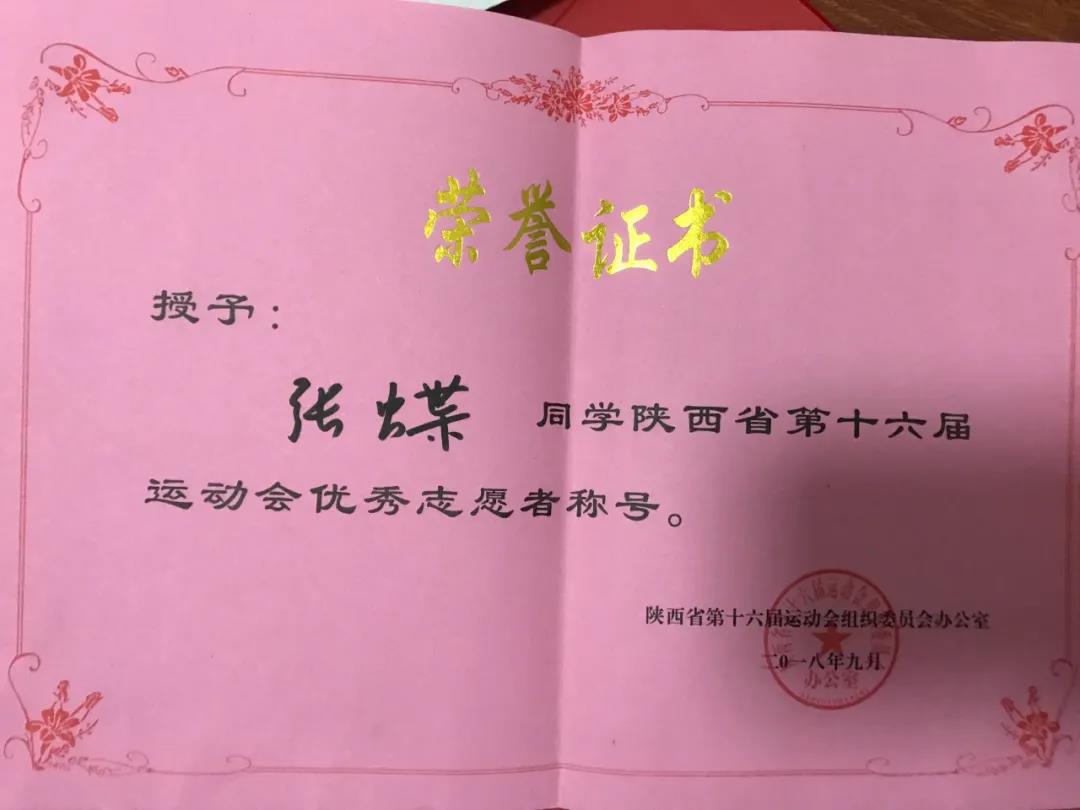 荣誉证书
授予：
张蝶 同学陕西省第十六届
运动会优秀志愿者称号。
陕西省第十六届运动会组织委员会办公室
二0一八年九月
办公室